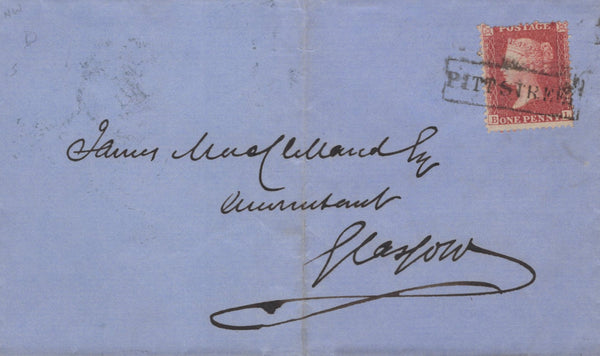 NW
D
POSTAGE
PITT STREET
ONE PENNY
James MacClelland Esq
Accountant
Glasgow